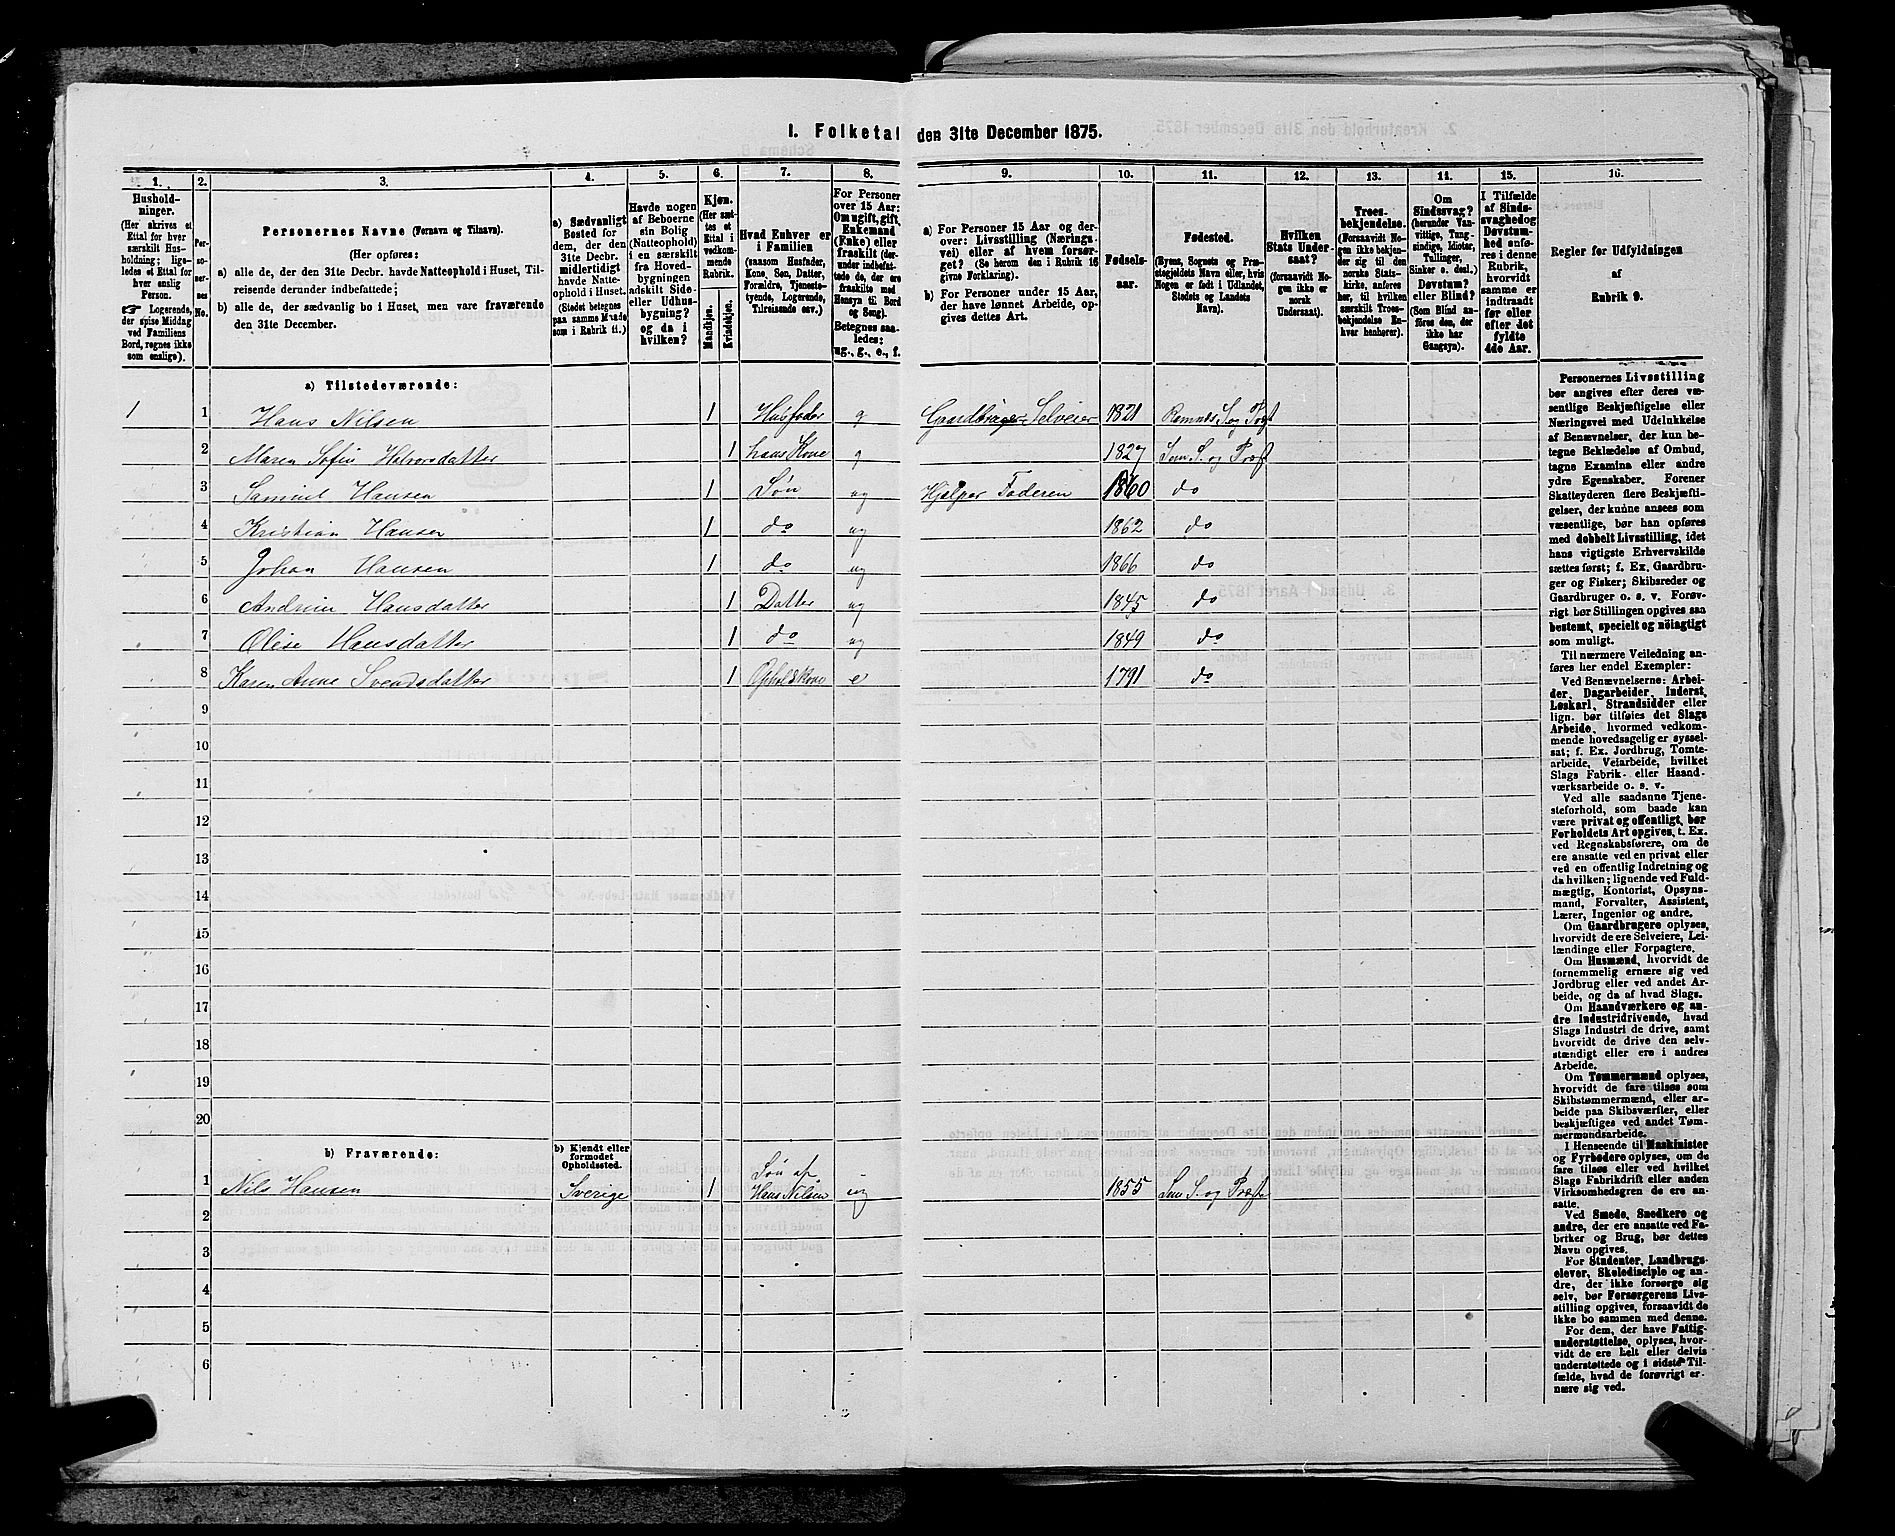 1. Folketal den 31te December 1875.
1. 2. 3. 4. 5. 6. 7. 8. 9. 10. 11. 12. 13. 14. 15. 16.
Hushold-
ninger.
(Her skrives et
Ettal for hver
særskilt Hus-
holdning; lige-
ledes et Ettal for
hver enslig
Person.
☞ Logerende,
der spise Middag
ved Familiens
Bord, regnes ikke
som enslige).
Per-
so-
ner-
nes
No.
Personernes Navne (Fornavn og Tilnavn).
(Her opføres:
a) alle de, der den 31te Decbr. havde Natteophold i Huset, Til-
reisende derunder indbefattede;
b) alle de, der sædvanlig bo i Huset, men vare fraværende
den 31te December.
a) Sædvanligt
Bosted for
dem, der den
31te Decbr.
midlertidigt
havde Natte-
ophold i Huset.
(Stedet betegnes
paa samme Maade
som i Rubrik 11.)
Havde nogen
af Beboerne
sin Bolig
(Natteophold)
i en særskilt
fra Hoved-
bygningen
adskilt Side-
eller Udhus-
bygning?
og da i
hvilken?
Kjøn.
(Her sæt-
tes et
Ettal i
vedkom-
mende
Rubrik.
Mandkjøn.
Kvindekjøn.
Hvad Enhver er
i Familien
(saasom Husfader,
Kone, Søn, Datter,
Forældre, Tjeneste-
tyende, Logerende,
Tilreisende osv.)
For Personer
over 15 Aar:
Om ugift, gift,
Enkemand
(Enke) eller
fraskilt (der-
under indbefat-
tede de, der ere
fraskilte med
Hensyn til Bord
og Seng).
Betegnes saa-
ledes:
ug., g., e., f.
a) For Personer 15 Aar og der-
over: Livsstilling (Nærings-
vei) eller af hvem forsør-
get? (Se herom den i Rubrik 16
givne Forklaring).
b) For Personer under 15 Aar,
der have lønnet Arbeide, op-
gives dettes Art.
Fødsels-
aar.
Fødested.
(Byens, Sognets og Præ-
stegjeldets Navn eller, hvis
Nogen er født i Udlandet,
Stedets og Landets
Navn).
Hvilken
Stats Under-
saat?
(forsaavidt No-
gen ikke er
norsk
Undersaat).
Troes-
bekjendelse.
(Forsaavidt No-
gen ikke bekjen-
der sig til den
norske Stats-
kirke, anføres
her, til hvilken
særskilt Troes-
bekjendelse En-
hver henhører).
Om
Sindssvag?
(herunder Van-
vittige, Tung-
sindige, Idioter,
Tullinger,
Sinker o. desl.)
Døvstum?
eller Blind?
(Som Blind an-
føres den, der
ikke har
Gangsyn).
I Tilfælde
af Sinds-
svaghed og
Døvstum-
hed anfø-
res i denne
Rubrik,
hvorvidt
samme er
indtraadt
før eller
efter det
fyldte
4de Aar.
Regler for Udfyldningen
af
Rubrik 9.
a) Tilstedeværende:
1 1 Hans Nilsen 1 Husfader g Gaardbruger Selveier 1821 Ramnes S. og Præst
2 Maren Sofie Halvorsdatter 1 hans Kone g 1827 Sem S. og Præst
3 Samuel Hansen 1 Søn ug Hjelper Faderen 1860 do
4 Kristian Hansen 1 do ug 1862 do
5 Johan Hansen 1 do ug 1866 do
6 Andrine Hansdatter 1 Datter ug 1845 do
7 Olise Hansdatter 1 do ug 1849 do
8 Karen Anne Svendsdatter 1 e 1791 do
9
10
11
12
13
14
15
16
17
18
19
20
b) Fraværende:
b) Kjendt eller
formodet
Opholdssted.
1 Nils Hansen Sverige 1 Søn af Hans Nilsen ug 1855 Sem S. og Præst
2
3
4
5
6
Personernes Livsstilling
bør angives efter deres væ-
sentlige Beskjæftigelse eller
Næringsvei med Udelukkelse
af Benævnelser, der kun be-
tegne Beklædelse af Ombud,
tagne Examina eller andre
ydre Egenskaber. Forener
Skatteyderen flere Beskjæfti-
gelser, der kunne ansees som
væsentlige, bør han opføres
med dobbelt Livsstilling, idet
hans vigtigste Erhvervskilde
sættes først; f. Ex. Gaardbru-
ger og Fisker; Skibsreder og
Gaardbruger o. s. v. Forøv-
rigt bør Stillingen opgives saa
bestemt, specielt og nöiagtigt
som muligt.
Til nærmere Veiledning an-
føres her endel Exempler:
Ved Benævnelserne: Arbei-
der, Dagarbeider, Inderst,
Løskarl, Strandsidder eller
lign. bør tilføies det Slags
Arbeide, hvormed vedkom-
mende hovedsagelig er syssel-
sat; f. Ex. Jordbrug, Tomte-
arbeide, Veiarbeide, hvilket
Slags Fabrik- eller Haand-
værksarbeide o. s. v.
Ved alle saadanne Tjene-
steforhold, som baade kan
være privat og offentligt, bør
Forholdets Art opgives, t. Ex.
ved Regnskabsførere, om de
ere ansatte ved en privat eller
ved en offentlig Indretning og
da hvilken; lignende ved Fuld-
mægtig, Kontorist, Opsyns-
mand, Forvalter, Assistent,
Lærer, Ingeniør og andre.
Om Gaardbrugere oplyses,
hvorvidt de ere Selveiere, Lei-
lændinge eller Forpagtere.
Om Husmænd, hvorvidt de
fornemmelig ernære sig ved
Jordbrug eller ved andet Ar-
beide, og da af hvad Slags.
Om Haandværkere og an-
dre Industridrivende, hvad
Slags Industri de drive, samt
hvorvidt de drive den selv-
stændigt eller ere i andres
Arbeide.
Om Tømmermænd oplyses,
hvorvidt de fare tilsøs som
Skibstømmermænd, eller ar-
beide paa Skibsværfter, eller
beskjæftiges ved andet Tøm-
mermandsarbeide.
I Henseende til Maskinister
og Fyrbødere oplyses, om de
fare tilsøs eller ved hvilket
Slags Fabrikdrift eller anden
Virksomhedsgren de ere an-
satte.
Ved Smede, Snedkere og
andre, der ere ansatte ved Fa-
briker og Brug, bør dettes
Navn opgives.
For Studenter, Landbrugs-
elever, Skoledisciple og an-
dre, der ikke forsørge sig
selv, bør Forsørgerens Livs-
stilling opgives, forsaavidt de
ikke bo sammen med denne.
For dem, der have Fattig-
understøttelse, oplyses, hvor-
vidt de ere helt eller delvis
understøttede og i sidste Til-
fælde, hvad de forøvrigt er-
nære sig ved.